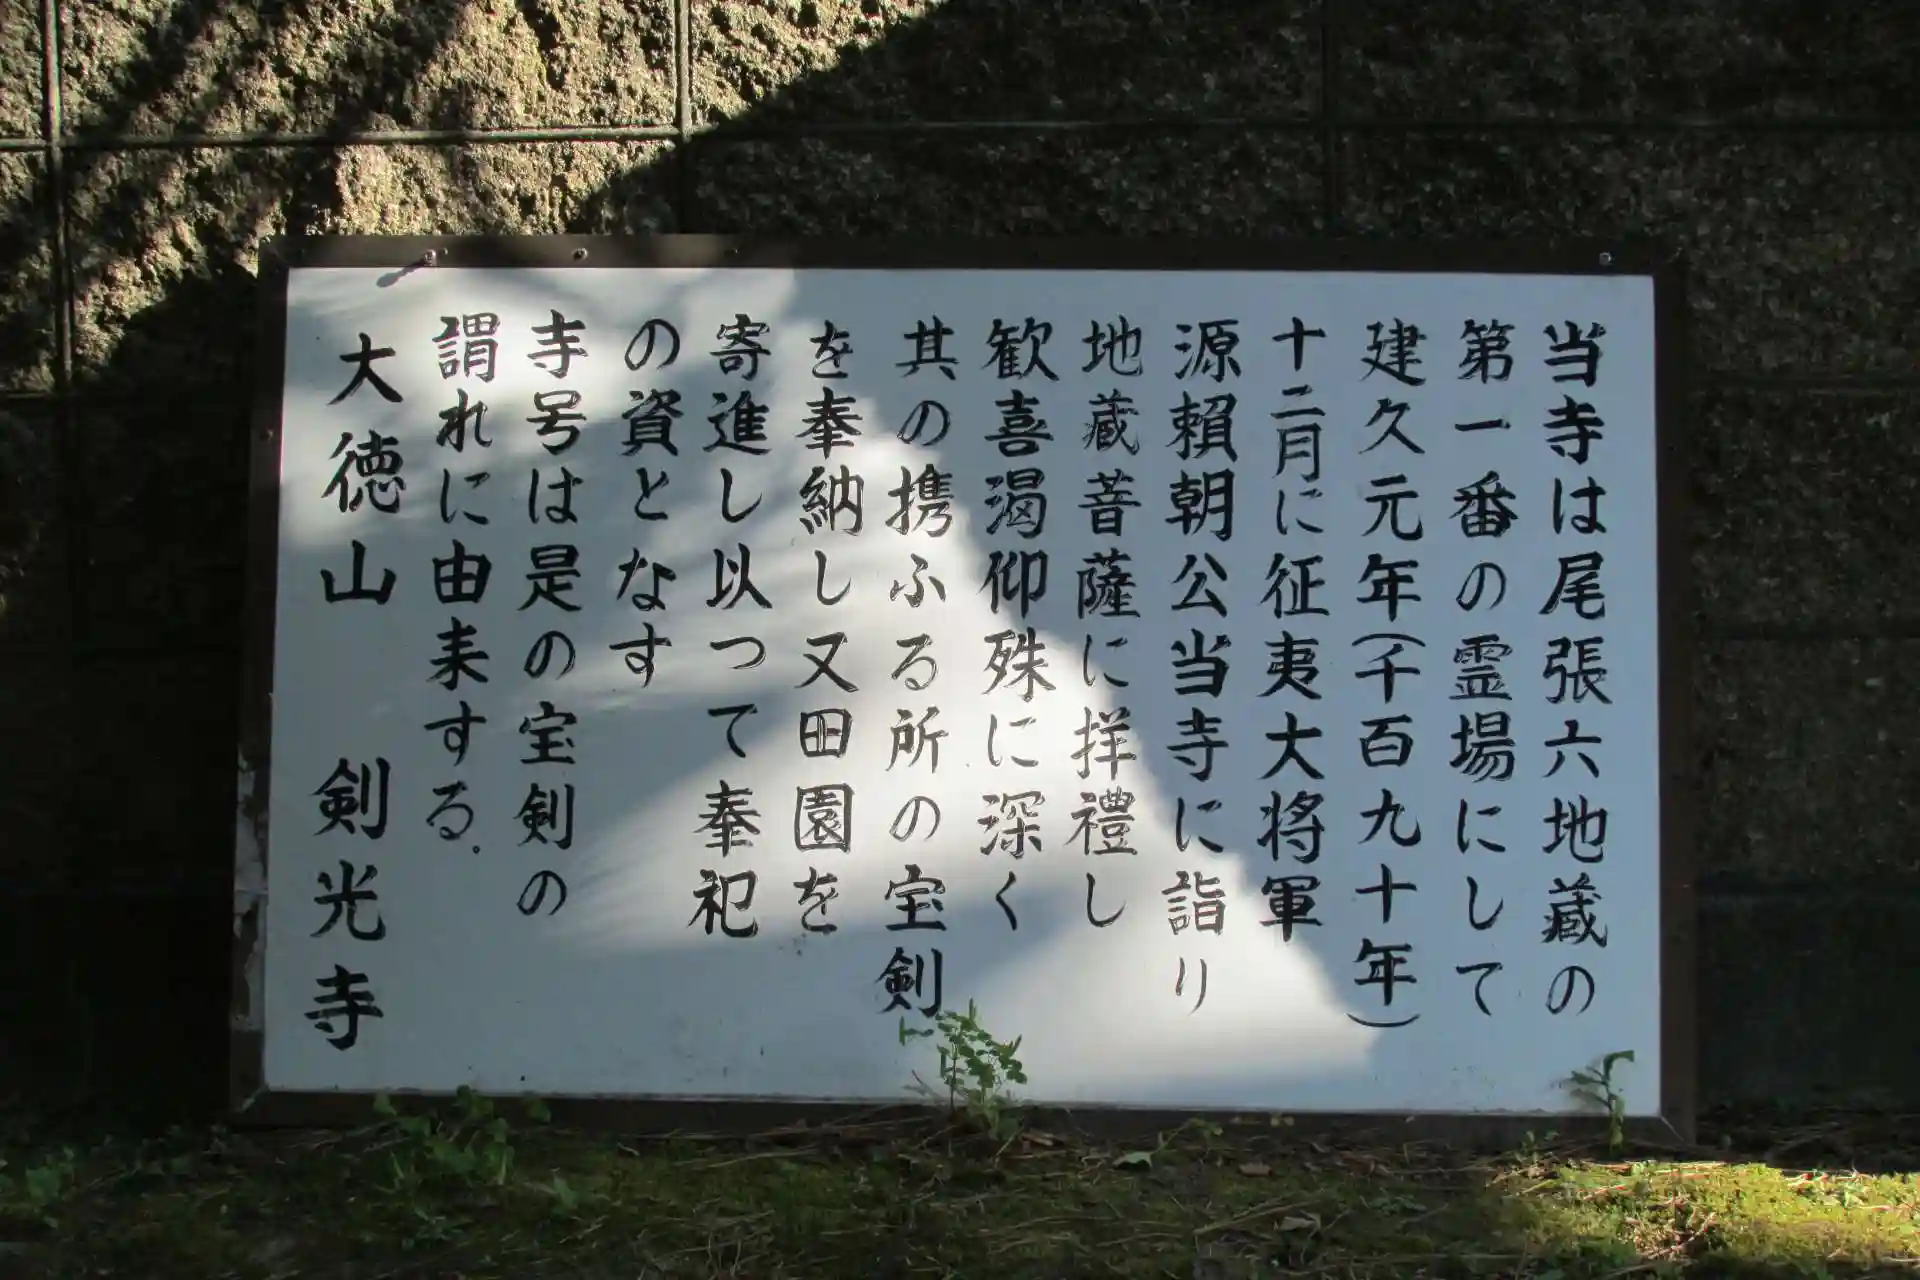 当寺は尾張六地蔵の
第一番の霊場にして
建久元年(千百九十年)
十二月に征夷大将軍
源頼朝公当寺に詣り
地蔵菩薩に拝禮し
歓喜渇仰殊に深く
其の携ふる所の宝剣
を奉納し又田園を
寄進し以つて奉祀
の資となす
寺号は是の宝剣の
謂れに由来する.
大徳山 剣光寺